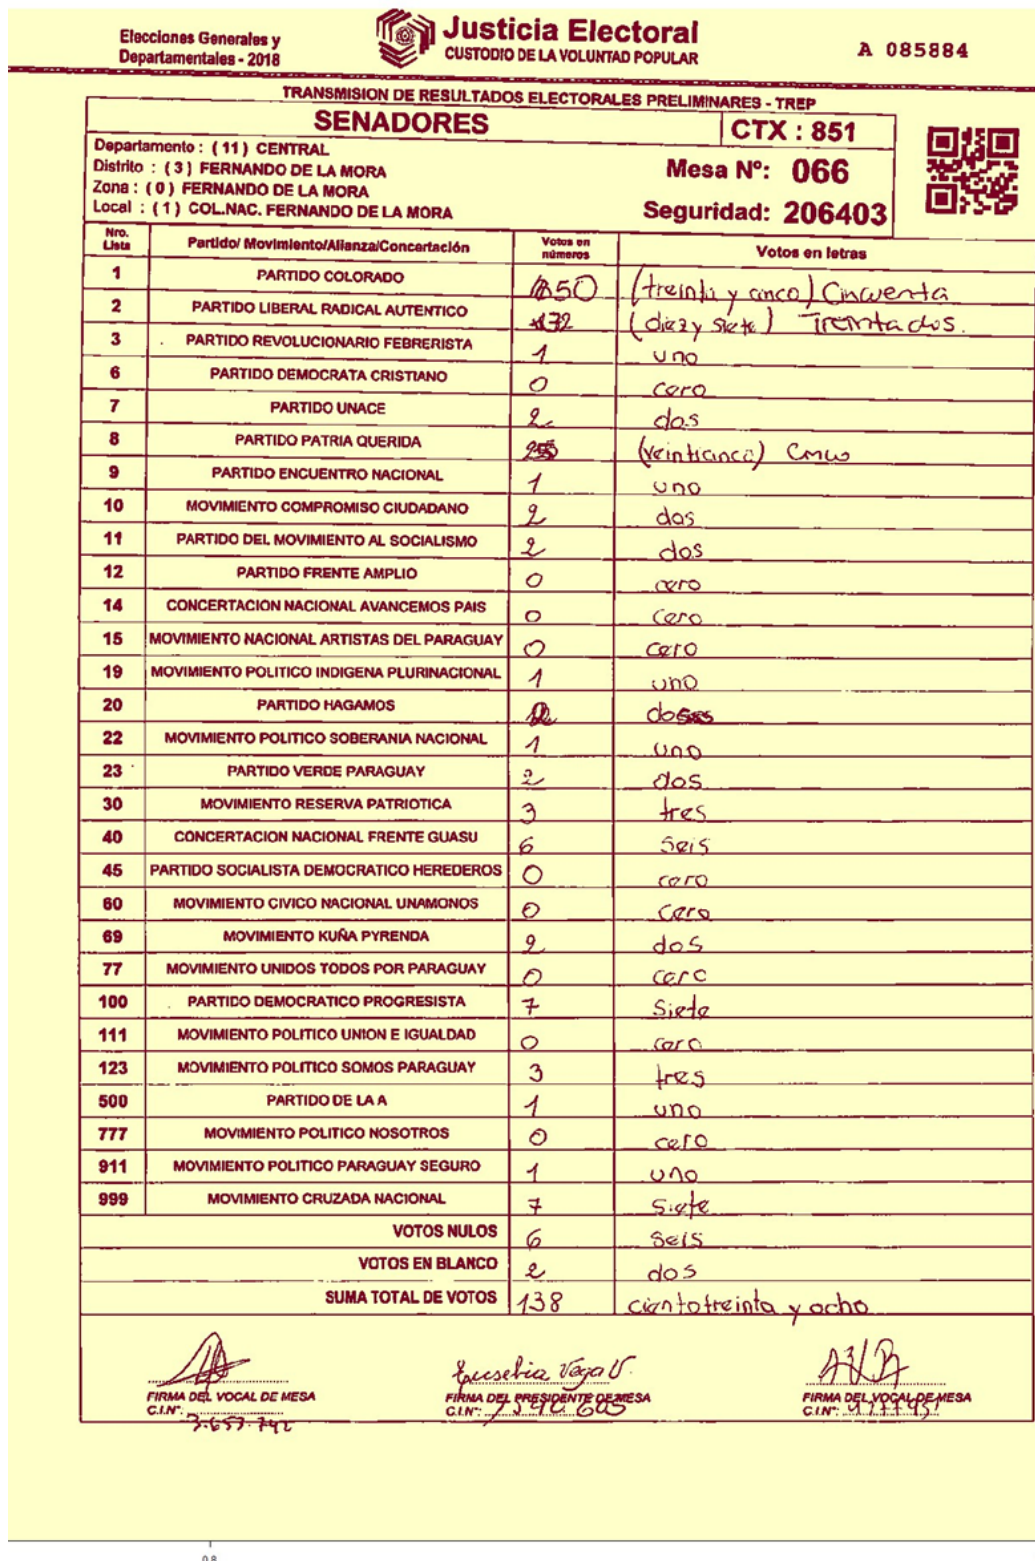 Elecciones Generales y
Departamentales - 2018
Justicia Electoral
CUSTODIO DE LA VOLUNTAD POPULAR
A 085884
TRANSMISION DE RESULTADOS ELECTORALES PRELIMINARES - TREP
SENADORES CTX : 851
Departamento : ( 11 ) CENTRAL
Distrito : ( 3 ) FERNANDO DE LA MORA
Zona : ( 0 ) FERNANDO DE LA MORA
Local : ( 1 ) COL.NAC. FERNANDO DE LA MORA
Mesa Nº: 066
Seguridad: 206403
Nro. Lista Partido/ Movimiento/Alianza/Concertación Votos en números Votos en letras
1 PARTIDO COLORADO 50 (treinta y cinco) Cincuenta
2 PARTIDO LIBERAL RADICAL AUTENTICO (diez y siete) Treinta dos.
3 PARTIDO REVOLUCIONARIO FEBRERISTA 1 uno
6 PARTIDO DEMOCRATA CRISTIANO 0 cero
7 PARTIDO UNACE 2 dos
8 PARTIDO PATRIA QUERIDA (veinticinco) Cinco
9 PARTIDO ENCUENTRO NACIONAL 1 uno
10 MOVIMIENTO COMPROMISO CIUDADANO 2 dos
11 PARTIDO DEL MOVIMIENTO AL SOCIALISMO 2 dos
12 PARTIDO FRENTE AMPLIO 0 cero
14 CONCERTACION NACIONAL AVANCEMOS PAIS 0 cero
15 MOVIMIENTO NACIONAL ARTISTAS DEL PARAGUAY 0 cero
19 MOVIMIENTO POLITICO INDIGENA PLURINACIONAL 1 uno
20 PARTIDO HAGAMOS
22 MOVIMIENTO POLITICO SOBERANIA NACIONAL 1 uno
23 PARTIDO VERDE PARAGUAY 2 dos
30 MOVIMIENTO RESERVA PATRIOTICA 3 tres
40 CONCERTACION NACIONAL FRENTE GUASU 6 Seis
45 PARTIDO SOCIALISTA DEMOCRATICO HEREDEROS 0 cero
60 MOVIMIENTO CIVICO NACIONAL UNAMONOS 0 Cero
69 MOVIMIENTO KUÑA PYRENDA 2 dos
77 MOVIMIENTO UNIDOS TODOS POR PARAGUAY 0 cero
100 PARTIDO DEMOCRATICO PROGRESISTA 7 Siete
111 MOVIMIENTO POLITICO UNION E IGUALDAD 0 cero
123 MOVIMIENTO POLITICO SOMOS PARAGUAY 3 tres
500 PARTIDO DE LA A 1 uno
777 MOVIMIENTO POLITICO NOSOTROS 0 cero
911 MOVIMIENTO POLITICO PARAGUAY SEGURO 1 uno
999 MOVIMIENTO CRUZADA NACIONAL 7 Siete
VOTOS NULOS 6 Seis
VOTOS EN BLANCO 2 dos
SUMA TOTAL DE VOTOS 138 ciento treinta y ocho
Eusebia Vega V.
FIRMA DEL VOCAL DE MESA FIRMA DEL PRESIDENTE DE MESA FIRMA DEL VOCAL DE MESA
C.I.N°: 3.657.742 C.I.N°: C.I.N°:
0.8